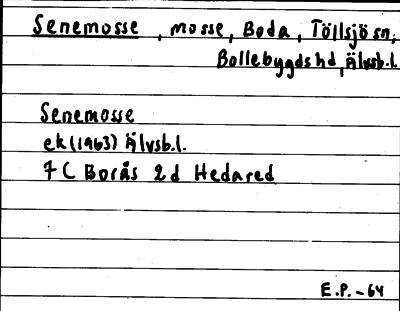 Senemosse, mosse, Boda, Töllsjö sn,
Bollebygds hd, Älvsb.l.
Senemosse
ek (1963) Älvsb.l.
7 C Borås 2 d Hedared
E.P. -64